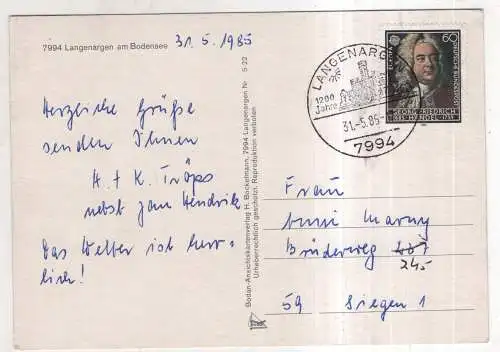 7994 Langenargen am Bodensee
31.5.1985
Herzliche Grüße
senden Ihnen
H. + K. Tröps
nebst Jan Hendrik
Das Wetter ist herr-
lich!
Bodan-Ansichtskartenverlag H. Bockelmann, 7994 Langenargen Nr 5 22
Urheberrechtlich geschützt. Reproduktion verboten
LANGENARGEN
1200
Jahre
31.-5.85-
7994
EUROPA
60
DEUTSCHE BUNDESPOST
GEORG FRIEDRICH
1685 HÄNDEL 1759
Frau
Marny
Brüderweg
245
59 Siegen 1